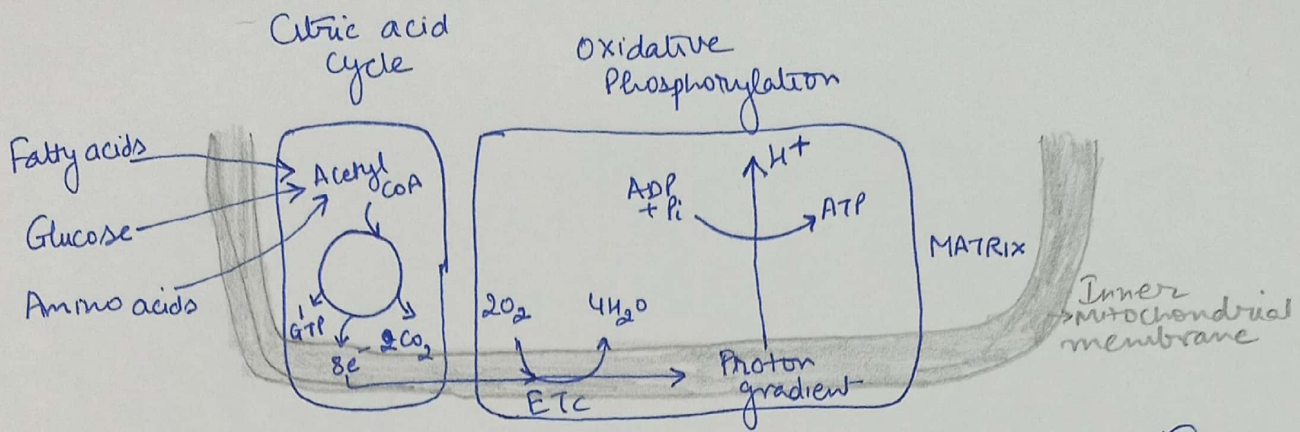 Citric acid
Cycle
Oxidative
Phosphorylation
Fatty acids
Glucose
Amino acids
Acetyl CoA
GTP
8e⁻
2CO₂
2O₂
4H₂O
ETC
ADP
+ Pi
ATP
H+
Proton
gradient
MATRIX
Inner
Mitochondrial
membrane